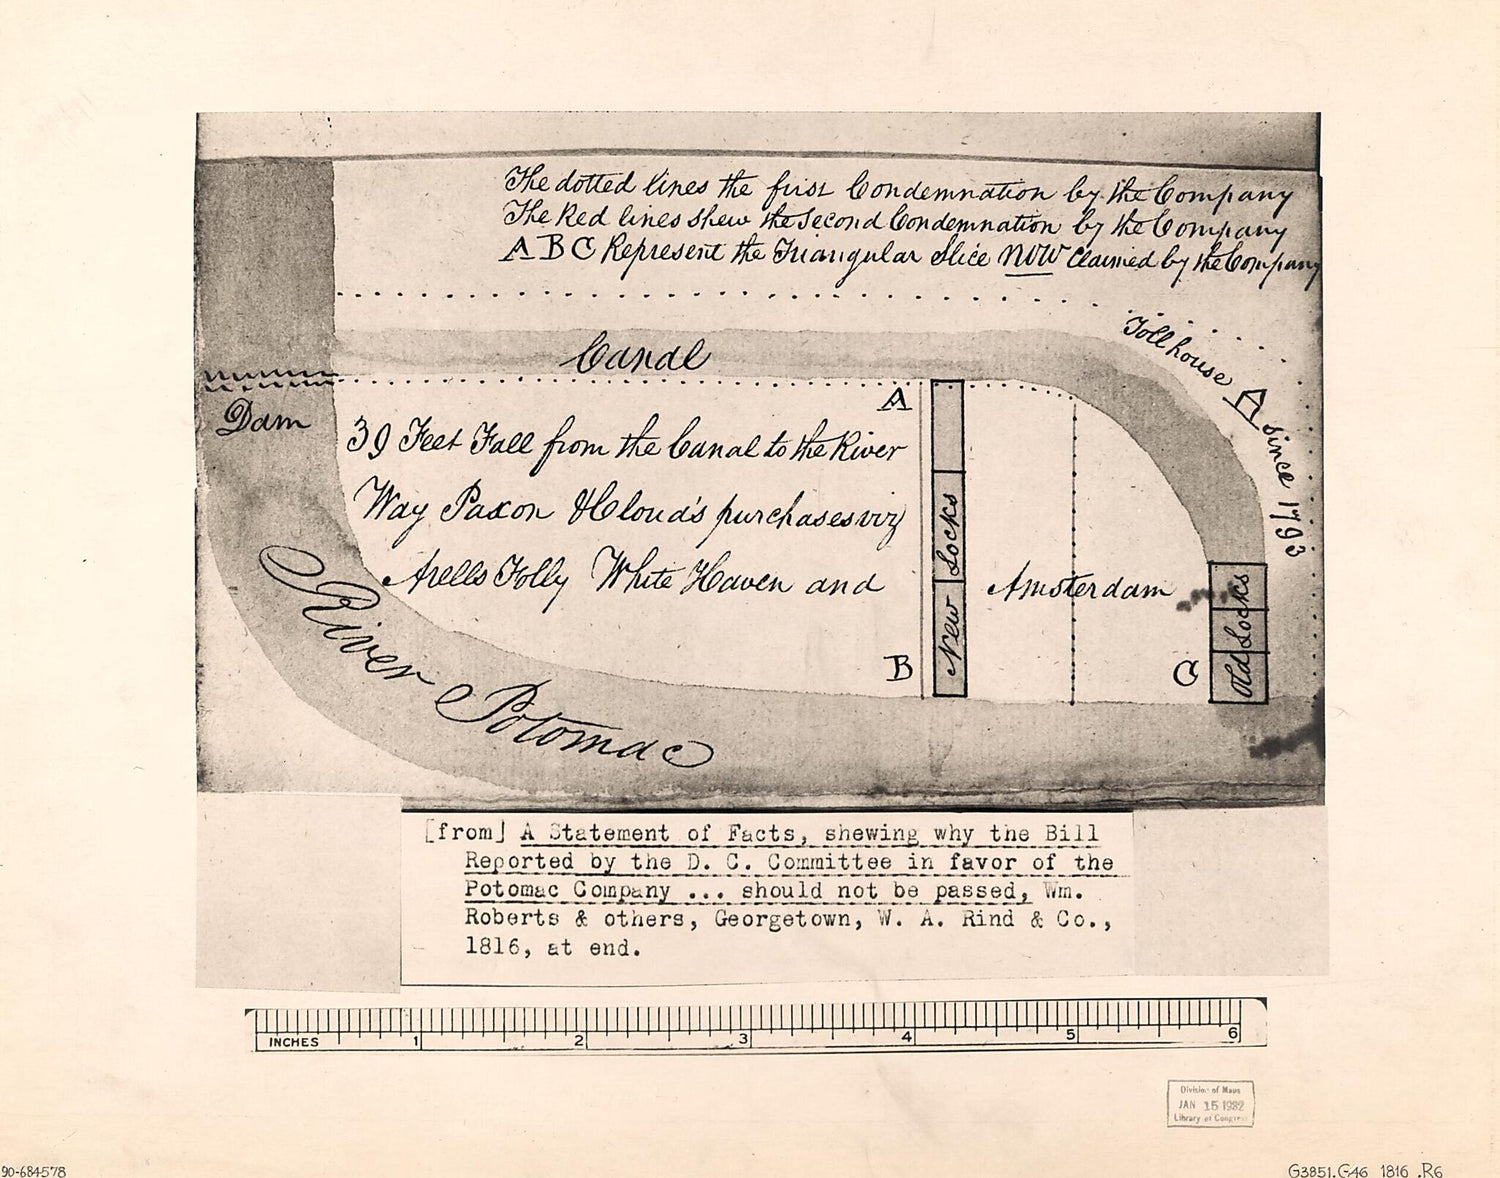 The dotted lines the first Condemnation by the Company
The Red lines shew the Second Condemnation by the Company
A B C Represent the Triangular Slice NOW Claimed by the Company
Tollhouse A since 1793
Canal
Dam
A
39 Feet Fall from the Canal to the River
Way Paxon & Cloud's purchases viz
Arells Folly White Haven and
Amsterdam
New Locks
Old Locks
B
C
River Potomac
[from] A Statement of Facts, shewing why the Bill
Reported by the D. C. Committee in favor of the
Potomac Company ... should not be passed, Wm.
Roberts & others, Georgetown, W. A. Rind & Co.,
1816, at end.
INCHES 1 2 3 4 5 6
Division of Maps
JAN 15 1932
Library of Congress
90-684578
G3851.G46 1816 .R6